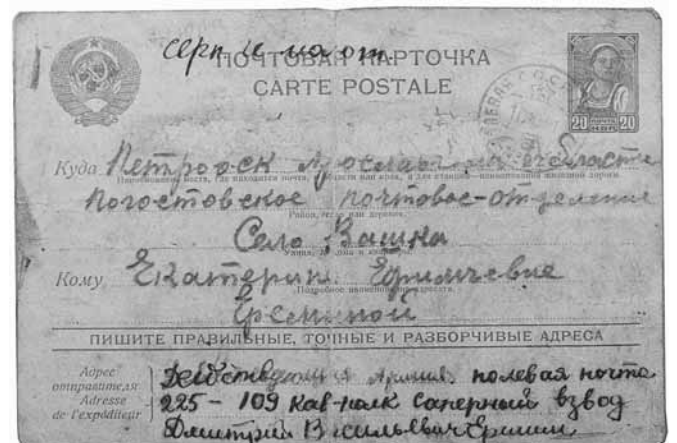 серп и молот
ПОЧТОВАЯ КАРТОЧКА
CARTE POSTALE
20 ПОЧТА СССР 20
ПОЛЕВАЯ
Куда Петровск Ярославской области
Погостовское почтовое отделение
Район, село или деревня.
Село Вашка
Кому Екатерине Ефимчевне
Подробное наименование адресата.
Ереминой
ПИШИТЕ ПРАВИЛЬНЫЕ, ТОЧНЫЕ И РАЗБОРЧИВЫЕ АДРЕСА
Адрес отправителя
Adresse de l'expéditeur
Действующая Армия. полевая почта
225 - 109 Кав-полк Саперный взвод
Дмитрий Васильевич Еримин